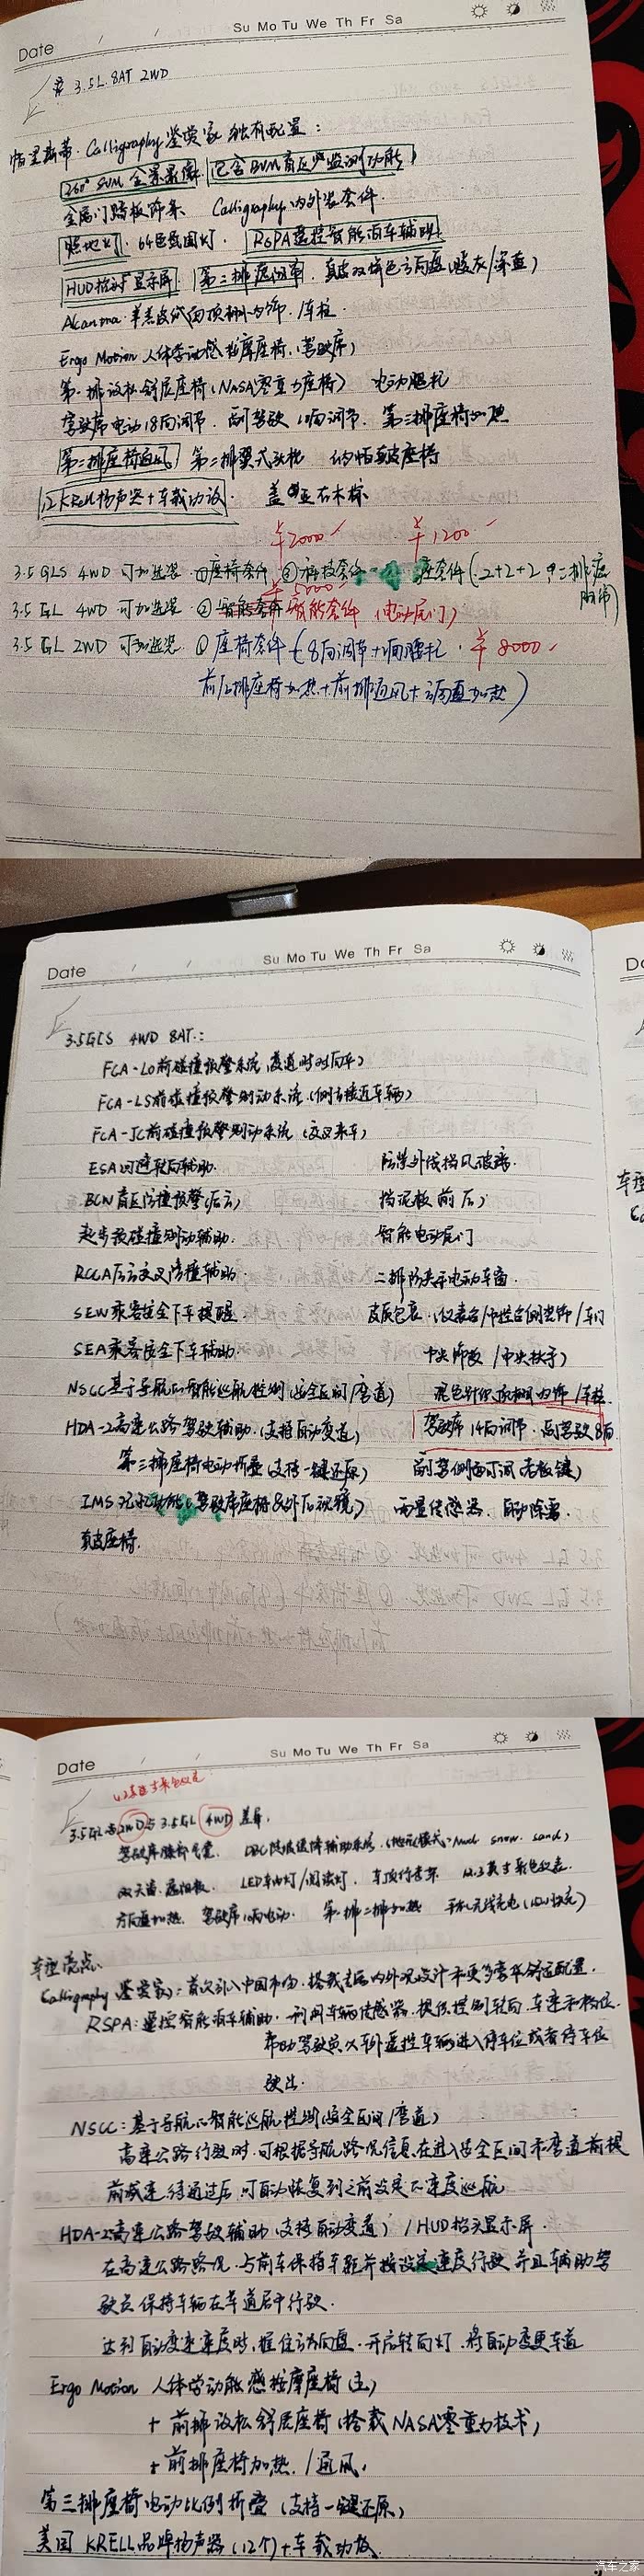 Date Su Mo Tu We Th Fr Sa
3.5L 8AT 2WD
帕里斯蒂·Calligraphy 鉴赏家 独有配置：
360° SVM 全景影像 (包含BVM盲区监测功能)
金属门踏板饰条 Calligraphy 内外装套件.
照地灯. 64色氛围灯. RSPA遥控智能泊车辅助
HUD抬头显示屏 第三排座椅 真皮双饰色方向盘(暖灰/深蓝)
车柱
Ergo Motion 人体学动感按摩座椅.(驾驶席)
第一排放松舒展座椅(NASA零重力座椅) 电动腿托
驾驶席电动18向调节. 副驾驶10向调节. 第三排座椅加热
第二排座椅通风 第二排翼式头枕 纳帕真皮座椅
12 Krell扬声器+车载功放.
¥2000 ¥1200
3.5 GLS 4WD 可加选装 ①座椅套件 ②科技套件 座套件(2+2+2
¥5000
3.5 GL 4WD 可加选装 ② 智能套件 (电动尾门)
3.5 GL 2WD 可加选装. ① 座椅套件 (8向调节+2向腰托. ¥8000
前/2排座椅加热+前排通风+方向盘加热)
Date Su Mo Tu We Th Fr Sa
3.5GLS 4WD 8AT.：
FCA-LO前碰撞报警系统(变道时对向车)
FCA-LS前碰撞报警制动系统(侧方接近车辆)
FCA-JC前碰撞报警制动系统(交叉来车)
ESA闪避转向辅助. 防紫外线挡风玻璃.
BCW盲区防撞报警(后方) 挡泥板(前后)
起步被碰撞制动辅助. 智能电动尾门
RCCA后方交叉防撞辅助. 二排防夹手电动车窗.
SEW乘客安全下车提醒. 皮质包裹.(仪表台/中控台侧装饰/车门
SEA乘客安全下车辅助. 中央饰板/中央扶手)
NSCC基于导航的智能巡航控制(安全区间/弯道) 混色针织顶棚内饰/车柱.
HDA-2高速公路驾驶辅助.(支持自动变道) 驾驶席14向调节. 副驾驶8向
第三排座椅电动折叠(支持一键还原) 副驾侧面可调(老板键)
IMS记忆功能(驾驶席座椅&外后视镜) 雨量传感器. 自动除雾.
真皮座椅.
Date Su Mo Tu We Th Fr Sa
3.5GL 2WD与3.5GL 4WD 差异.
驾驶席膝部气囊. DBC陡坡缓降辅助系统.(地形模式: Mud snow. sand)
双天窗.遮阳板. LED车内灯/阅读灯. 车顶行李架 12.3英寸彩色仪表.
方向盘加热. 驾驶席10向电动. 第一排二排加热 手机无线充电
车型亮点.
Calligraphy 鉴赏家：首次引入中国市场.搭载专属内外观设计和更多豪华舒适配置.
RSPA：遥控智能泊车辅助.利用车辆传感器.提供控制转向.车速和档位.
帮助驾驶员从车外遥控车辆进入停车位或者停车位
驶出.
NSCC：基于导航的智能巡航控制(安全区间/弯道)
高速公路行驶时.可根据导航路况信息.在进入安全区间和弯道前提
前减速.待通过后.可自动恢复到之前设定的速度巡航
HDA-2高速公路驾驶辅助(支持自动变道)/HUD抬头显示屏.
在高速公路路况.与前车保持车距并按设定速度行驶.并且辅助驾
驶员保持车辆在车道居中行驶.
达到自动变速速度时.握住方向盘.开启转向灯.将自动变更车道
Ergo Motion 人体学动能感按摩座椅(主)
+ 前排放松舒展座椅(搭载NASA零重力技术)
+ 前排座椅加热./通风.
第三排座椅电动比例折叠(支持一键还原)
美国 KRELL品牌扬声器(12个)+车载功放.
汽车之家